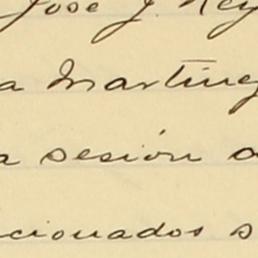 Jose J. Rey
a Martine
a sesión a
cionados s